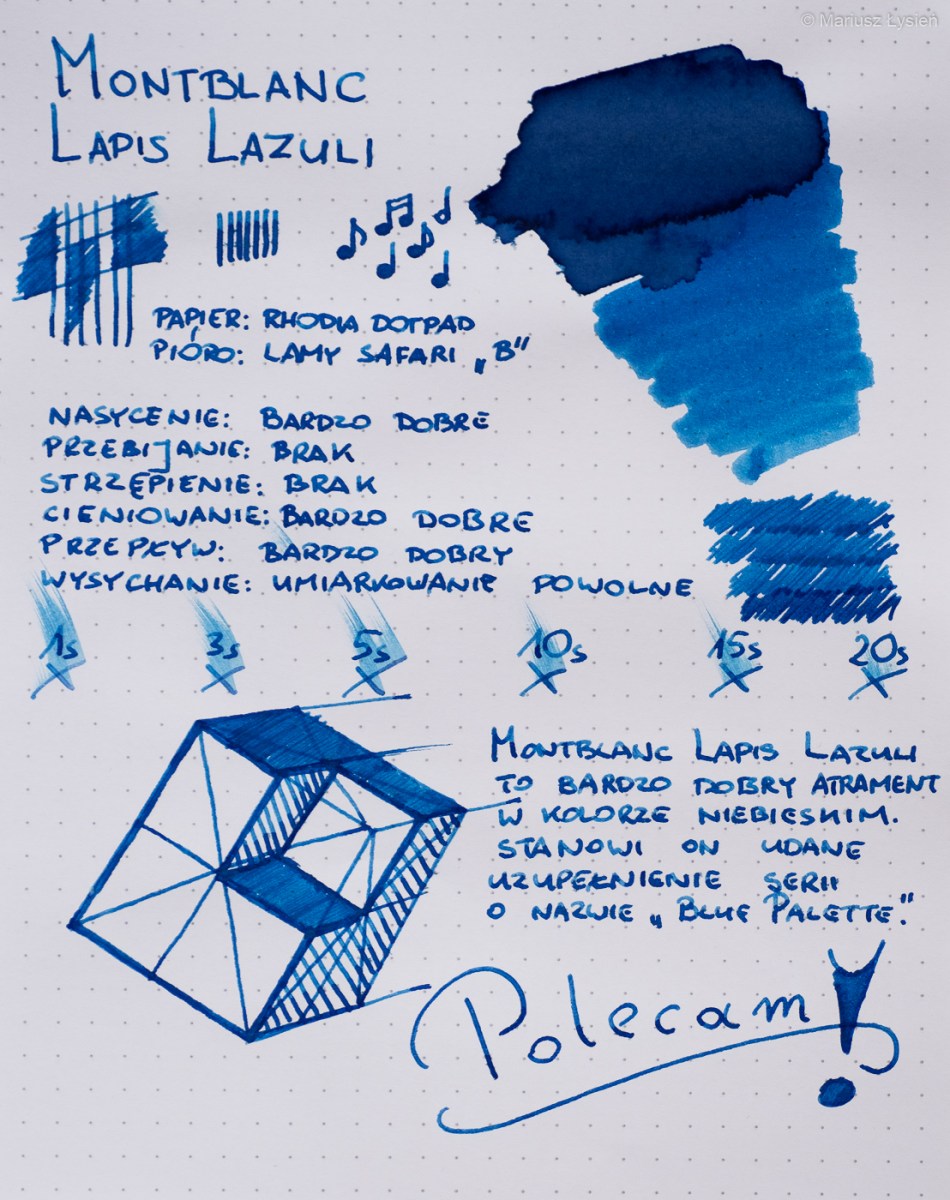 © Mariusz Łysień
MONTBLANC
LAPIS LAZULI
PAPIER: RHODIA DOTPAD
PIÓRO: LAMY SAFARI „B”
NASYCENIE: BARDZO DOBRE
PRZEBIJANIE: BRAK
STRZĘPIENIE: BRAK
CIENIOWANIE: BARDZO DOBRE
PRZEPŁYW: BARDZO DOBRY
WYSYCHANIE: UMIARKOWANIE POWOLNE
1s 3s 5s 10s 15s 20s
MONTBLANC LAPIS LAZULI
TO BARDZO DOBRY ATRAMENT
W KOLORZE NIEBIESKIM.
STANOWI ON UDANE
UZUPEŁNIENIE SERII
O NAZWIE „BLUE PALETTE”.
Polecam!